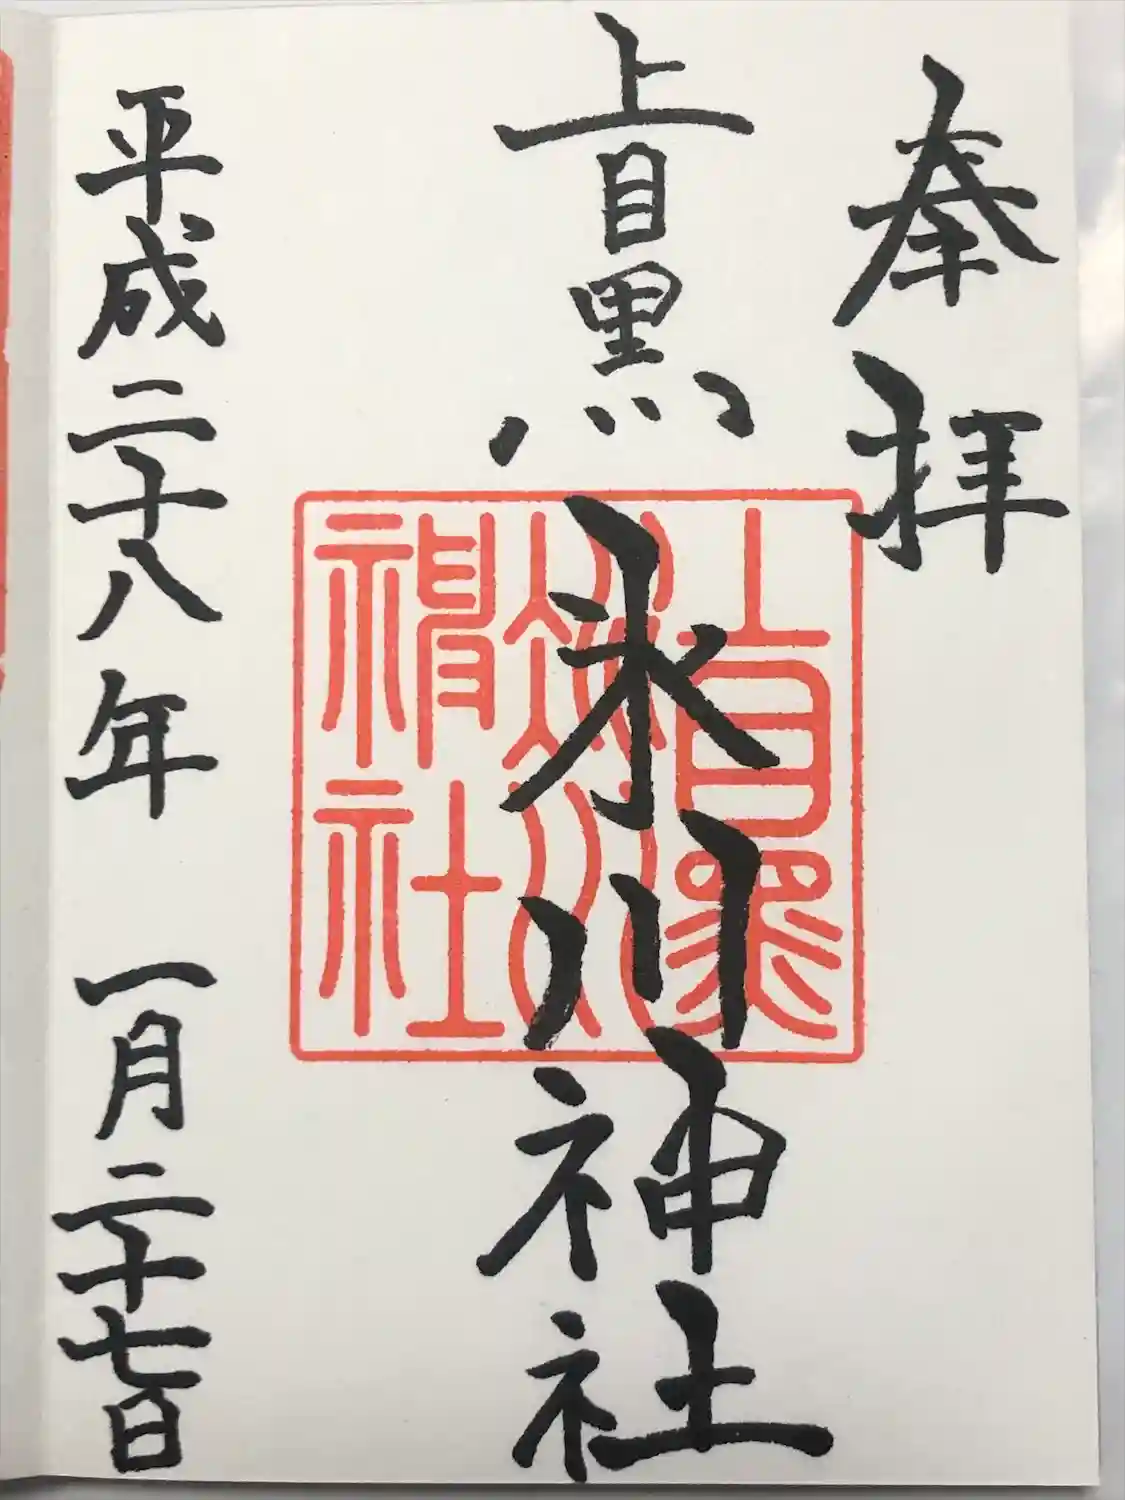 奉拝
上目黒氷川神社
平成二十八年 一月二十七日
上目黒氷川神社